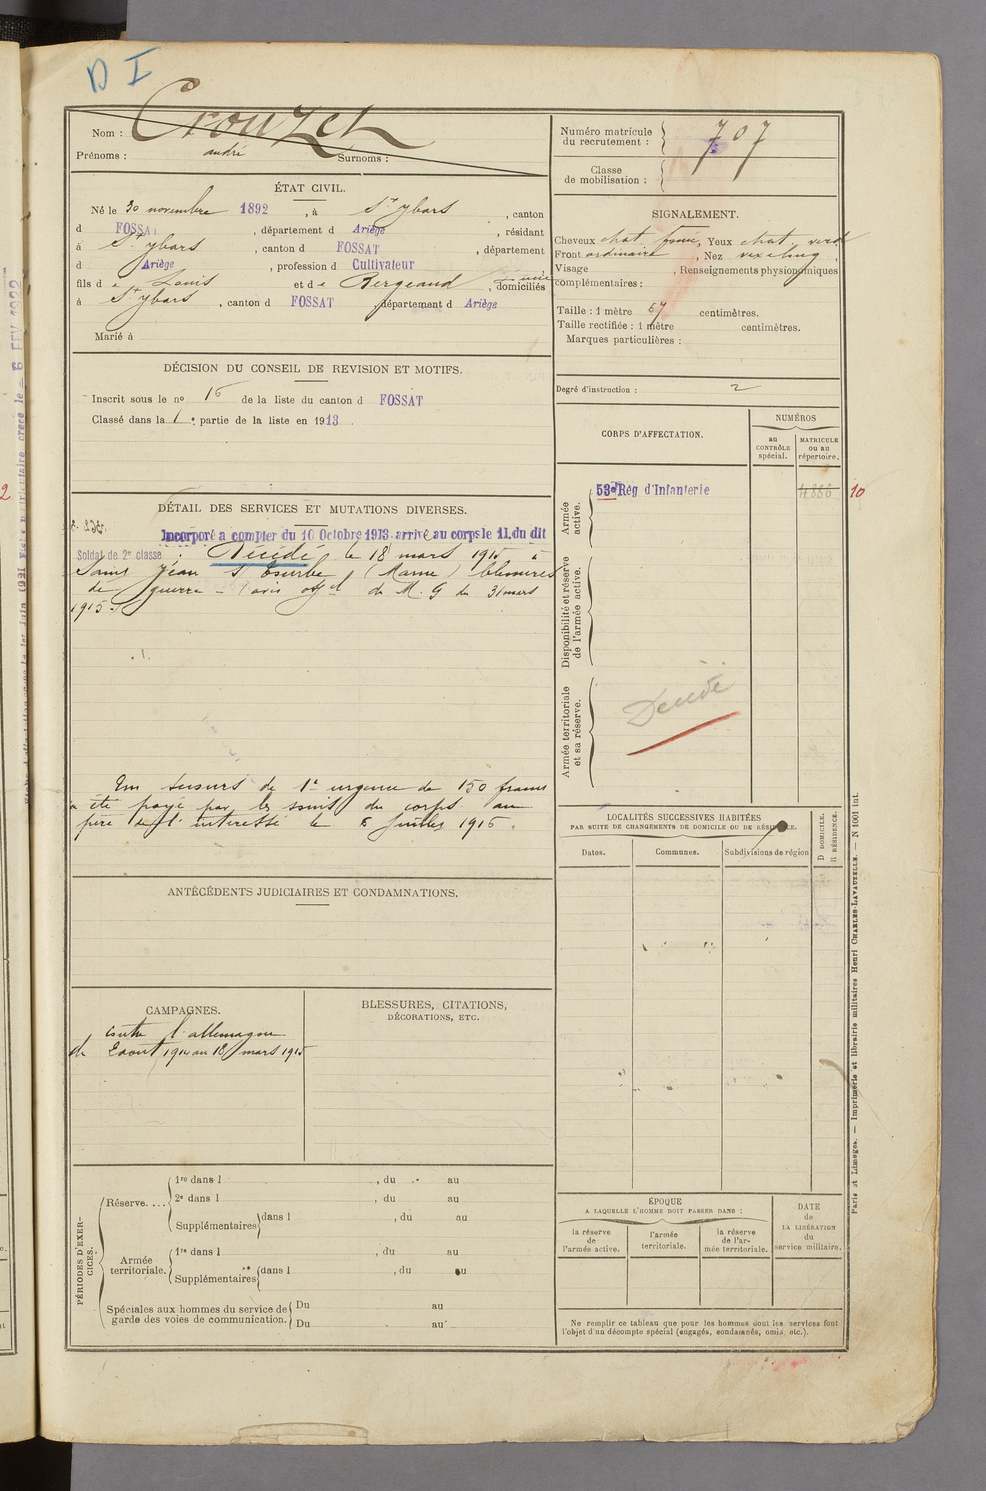 D I
Nom : Crouzet
Prénoms : andré Surnoms :
ÉTAT CIVIL.
Né le 30 novembre 1892, à St ybars, canton
d FOSSAT, département d Ariège, résidant
à St ybars, canton d FOSSAT, département
d Ariège, profession d Cultivateur
fils de Louis et de Bergeaud, domiciliés
à St ybars, canton d FOSSAT, département d Ariège
Marié à
DÉCISION DU CONSEIL DE REVISION ET MOTIFS.
Inscrit sous le no 16 de la liste du canton d FOSSAT
Classé dans la 1e partie de la liste en 1913.
DÉTAIL DES SERVICES ET MUTATIONS DIVERSES.
Incorporé a compter du 10 Octobre 1913 arrivé au corps le 11 du dit
Soldat de 2e classe. Décédé le 18 mars 1915 à
Saint Jean s Tourbe (Marne) blessures
de guerre - (avis offel du M. G du 31 mars
1915.
Un secours de 1e urgence de 150 francs
a été payé par les soins du corps au
père de l'interessé le 6 Juillet 1915.
ANTÉCÉDENTS JUDICIAIRES ET CONDAMNATIONS.
CAMPAGNES.
contre l'allemagne
du 2 aout 1914 au 18 mars 1915
BLESSURES, CITATIONS,
DÉCORATIONS, ETC.
PÉRIODES D'EXERCICES.
Réserve....
1re dans l , du au
2e dans l , du au
Supplémentaires dans l , du au
Armée
territoriale.
1re dans l , du au
Supplémentaires dans l , du au
Spéciales aux hommes du service de
garde des voies de communication.
Du au
Du au
Numéro matricule
du recrutement : 707
Classe
de mobilisation :
SIGNALEMENT.
Cheveux chat foncé, Yeux chat verd
Front ordinaire, Nez
Visage , Renseignements physionomiques
complémentaires :
Taille : 1 mètre 67 centimètres.
Taille rectifiée : 1 mètre centimètres.
Marques particulières :
Degré d'instruction : 2
CORPS D'AFFECTATION.
NUMÉROS
au
CONTRÔLE
spécial.
MATRICULE
ou au
répertoire.
Armée
active.
53e Rég d'Infanterie 4886 10
Disponibilité et réserve
de l'armée active.
Armée territoriale
et sa réserve.
Décédé
LOCALITÉS SUCCESSIVES HABITÉES
PAR SUITE DE CHANGEMENTS DE DOMICILE OU DE RÉSIDENCE.
Dates.
Communes.
Subdivisions de région
D DOMICILE.
R RÉSIDENCE.
ÉPOQUE
A LAQUELLE L'HOMME DOIT PASSER DANS :
la réserve
de
l'armée active.
l'armée
territoriale.
la réserve
de l'ar-
mée territoriale.
DATE
de
LA LIBÉRATION
du
service militaire.
Ne remplir ce tableau que pour les hommes dont les services font
l'objet d'un décompte spécial (engagés, condamnés, omis, etc.).
Paris et Limoges. — Imprimerie et librairie militaires Henri CHARLES-LAVAUZELLE. — N 1001 Int.